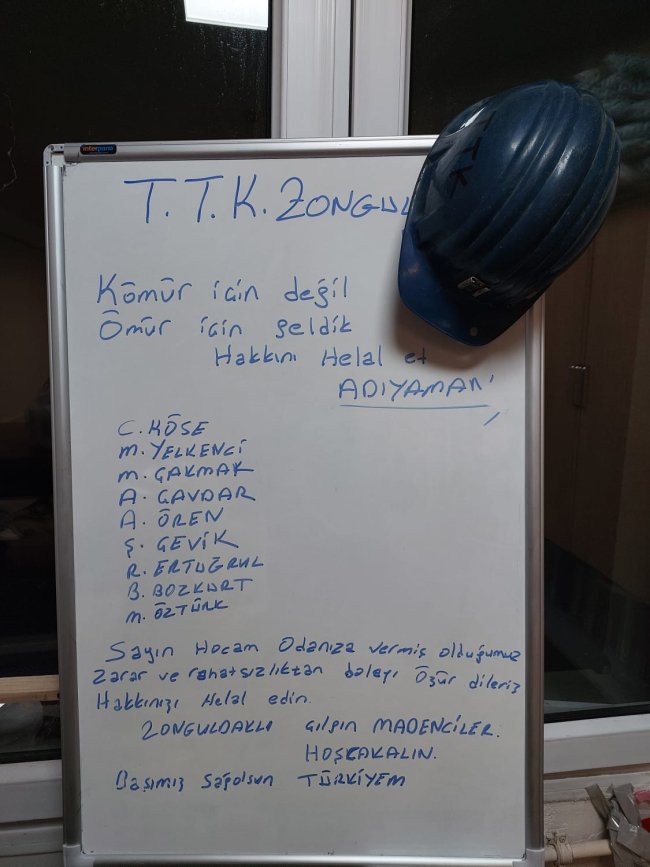 interpano
T.T.K. ZONGUL
TTK
Kömür için değil
Ömür için geldik
Hakkını Helal et
ADIYAMAN'
C. KÖSE
M. YELKENCİ
M. ÇAKMAK
A. ÇAVDAR
A. ÖREN
Ş. ÇEVİK
R. ERTUĞRUL
B. BOZKURT
M. ÖZTÜRK
Sayın Hocam Odanıza vermiş olduğumuz
zarar ve rahatsızlıktan dolayı Özür dileriz
Hakkınızı Helal edin.
ZONGULDAKLI çılgın MADENCİLER.
HOŞÇAKALIN.
Başımız Sağolsun TÜRKİYEM